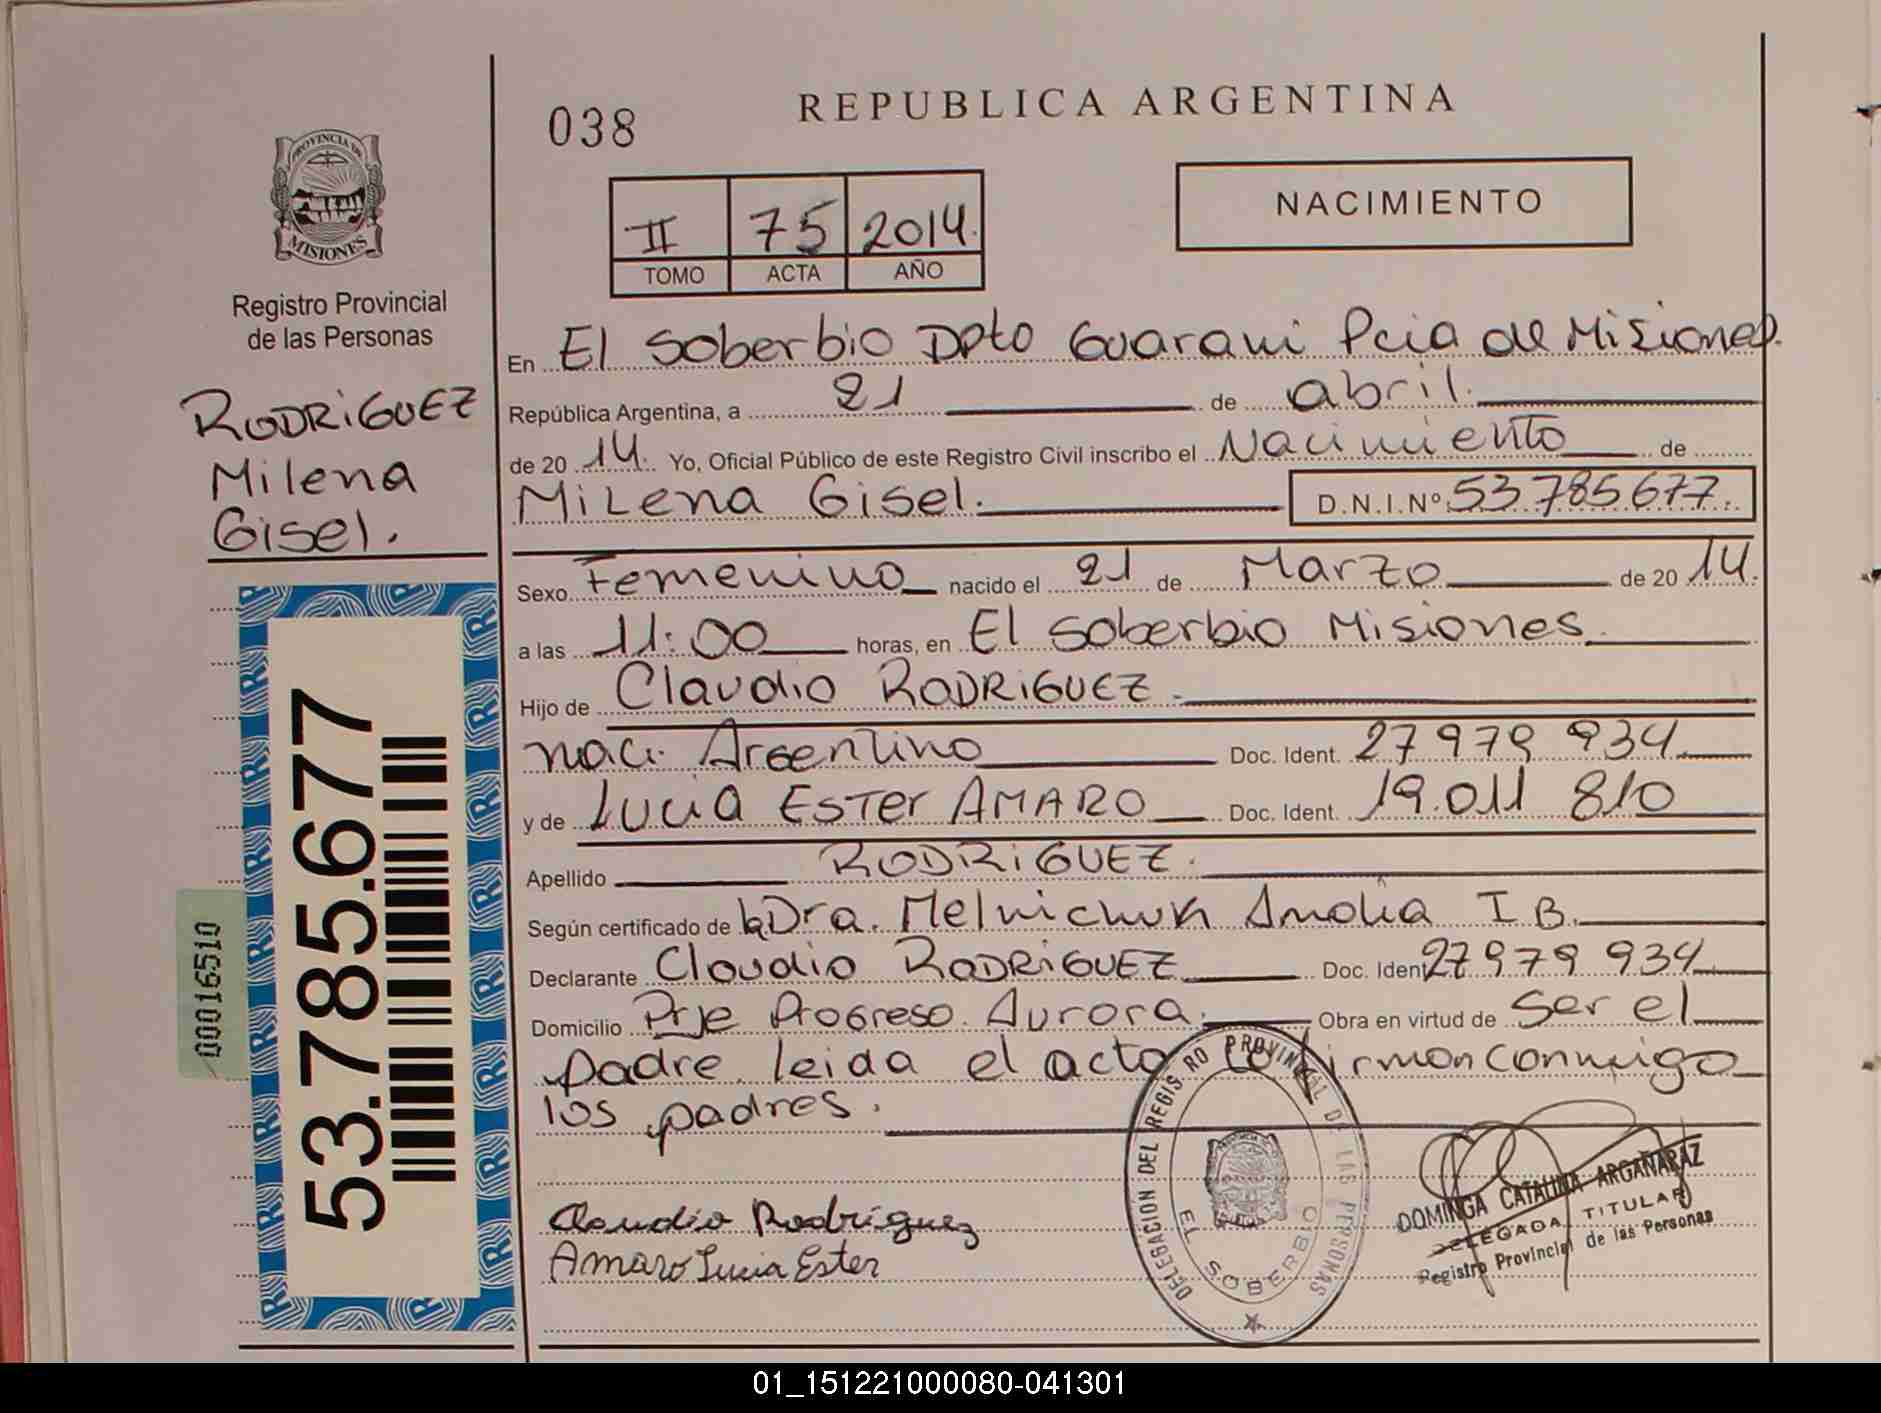 038
REPUBLICA ARGENTINA
NACIMIENTO
II 75 2014.
TOMO ACTA AÑO
PROVINCIA DE MISIONES
Registro Provincial
de las Personas
RODRIGUEZ
Milena
Gisel.
53.785.677
00016510
En El Soberbio Dpto Guarani Pcia de Misiones.
República Argentina, a 21 de abril.
de 20 14. Yo, Oficial Público de este Registro Civil inscribo el Nacimiento de
Milena Gisel. D.N.I.Nº 53 785 677.
Sexo Femenino nacido el 21 de Marzo de 20 14.
a las 11:00 horas, en El Soberbio Misiones.
Hijo de Claudio RODRIGUEZ.
naci. Argentino Doc. Ident. 27 979 934
y de Lucia Ester AMARO Doc. Ident. 19.011 810
Apellido RODRIGUEZ.
Según certificado de la Dra. Melnichuk Amalia I.B.
Declarante Claudio RODRIGUEZ Doc. Ident 27 979 934
Domicilio Prje Progreso. Aurora. Obra en virtud de ser el
padre. leida el acta la firman conmigo
los padres.
Claudio Rodriguez
Amaro Lucia Ester
DELEGACION DEL REGISTRO PROVINCIAL DE LAS PERSONAS
EL SOBERBIO
DOMINGA CATALINA ARGAÑARAZ
DELEGADA TITULAR
Registro Provincial de las Personas
01_151221000080-041301